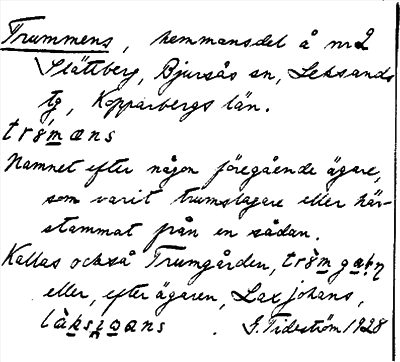 Trummens, hemmansdel å nr 2
Slättberg, Bjursås sn, Leksands
tg, Kopparbergs län.
Namnet efter någon föregående ägare,
som varit trumslagare eller här-
stammat från en sådan.
Kallas också Trumgården,
eller, efter ägaren, Lax johans,
G. Tideström 1928